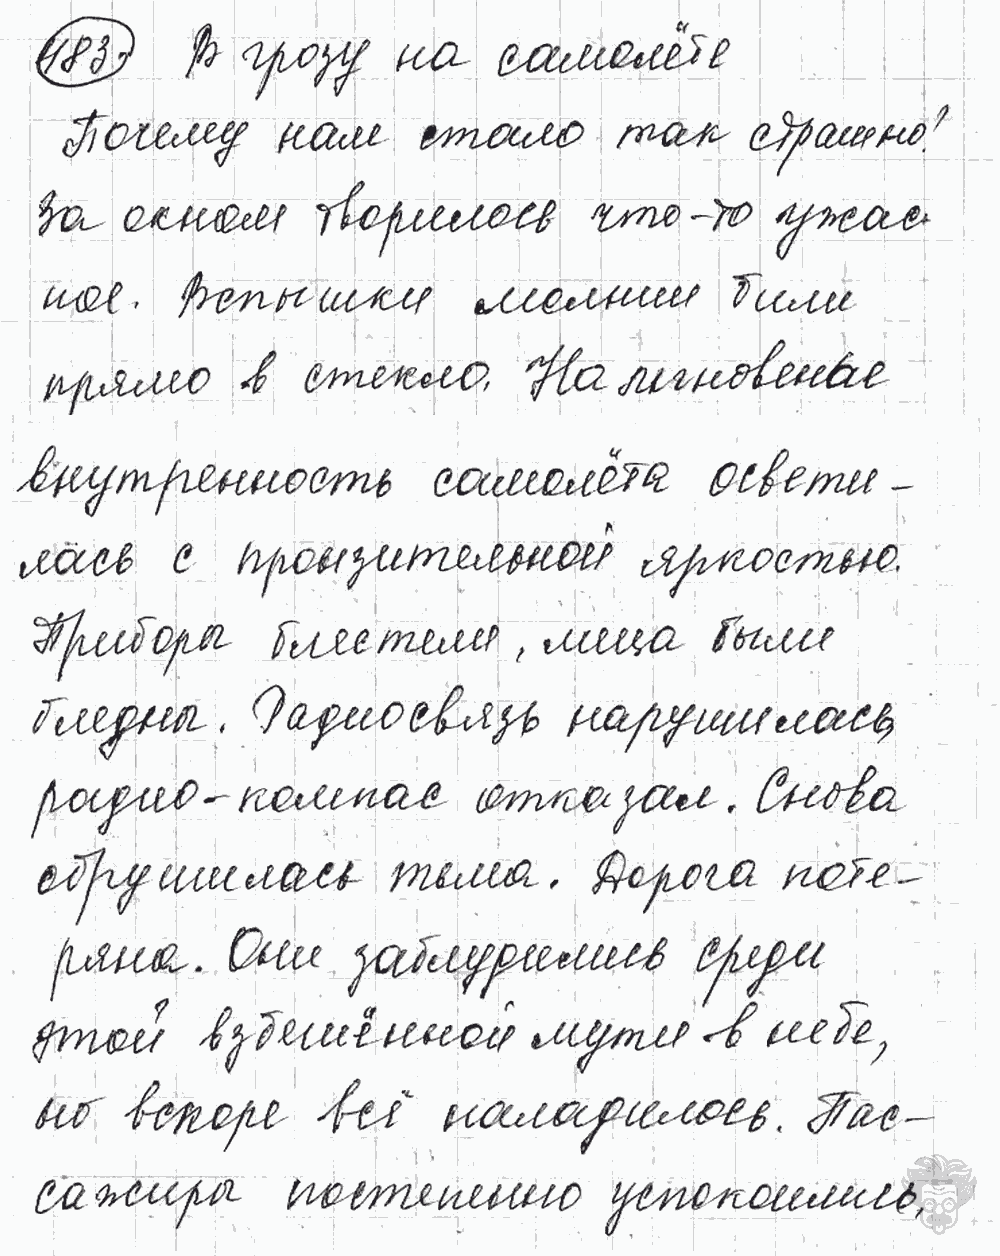 483. В грозу на самолёте
Почему нам стало так страшно?
За окном творилось что-то ужас-
ное. Вспышки молнии били
прямо в стекло. На мгновенье
внутренность самолёта освети-
лась с пронзительной яркостью.
Приборы блестели, лица были
бледны. Радиосвязь нарушилась,
радио-компас отказал. Снова
обрушилась тьма. Дорога поте-
ряна. Они заблудились среди
этой взбешённой мути в небе,
но вскоре всё наладилось. Пас-
сажиры постепенно успокоились,